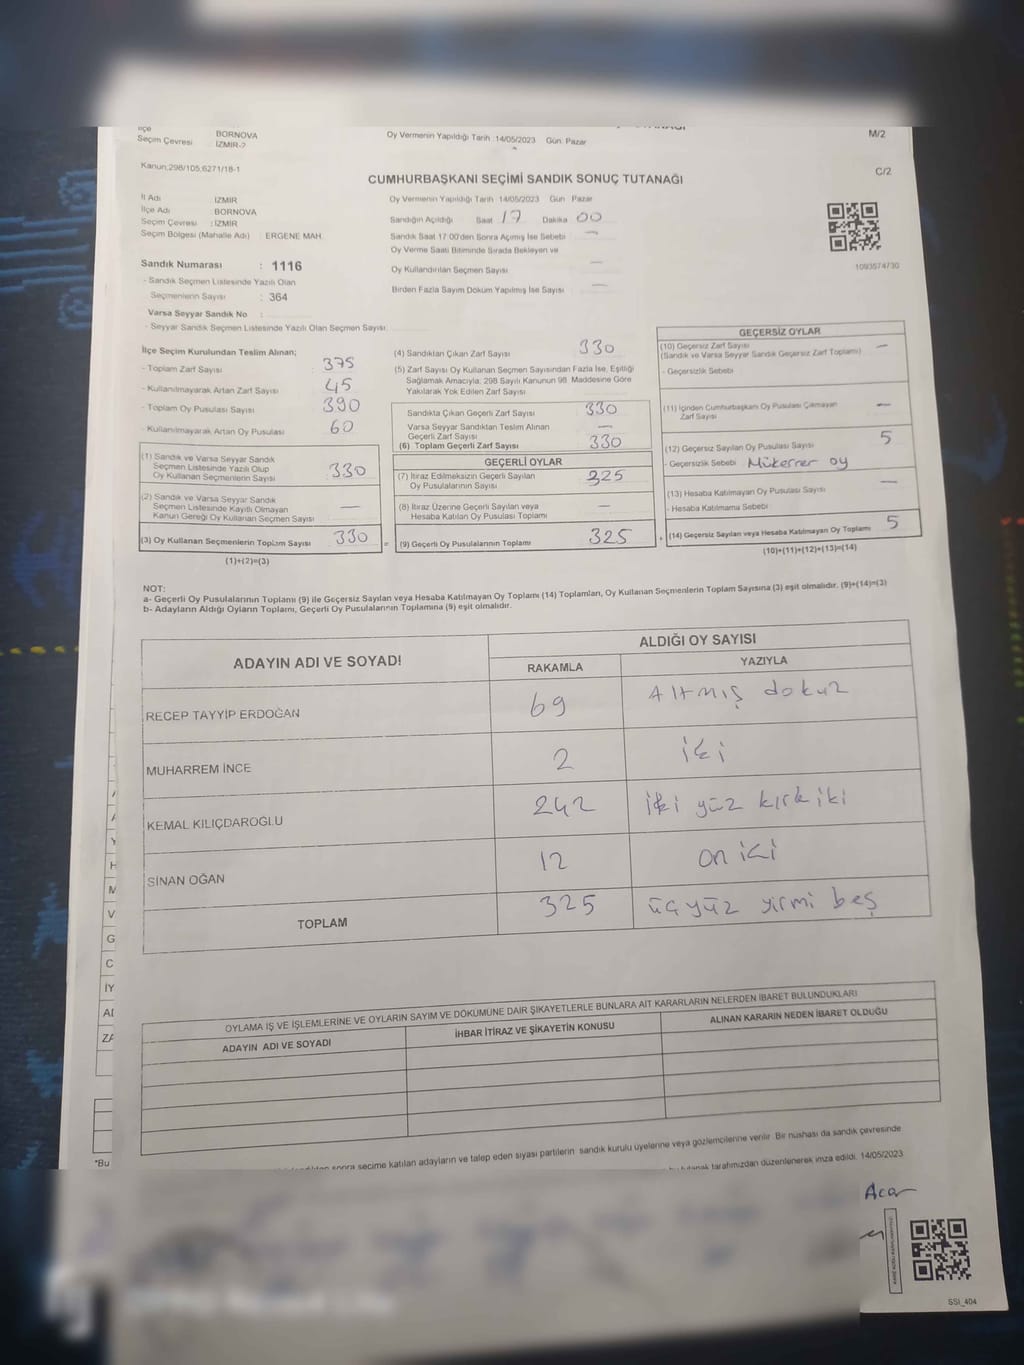 İlçe BORNOVA
Seçim Çevresi İZMİR-2
Oy Vermenin Yapıldığı Tarih :14/05/2023 Gün: Pazar
M/2
Kanun:298/105,6271/18-1
C/2
CUMHURBAŞKANI SEÇİMİ SANDIK SONUÇ TUTANAĞI
İl Adı İZMİR
İlçe Adı BORNOVA
Seçim Çevresi : İZMİR
Seçim Bölgesi (Mahalle Adı) : ERGENE MAH.
Oy Vermenin Yapıldığı Tarih 14/05/2023 Gün Pazar
Sandığın Açıldığı Saat 17 Dakika 00
Sandık Saat 17:00'den Sonra Açımış İse Sebebi —
Oy Verme Saati Bitiminde Sırada Bekleyen ve
Oy Kullandırılan Seçmen Sayısı —
Birden Fazla Sayım Döküm Yapılmış İse Sayısı —
1093574730
Sandık Numarası : 1116
- Sandık Seçmen Listesinde Yazılı Olan
Seçmenlerin Sayısı : 364
Varsa Seyyar Sandık No :
- Seyyar Sandık Seçmen Listesinde Yazılı Olan Seçmen Sayısı:
İlçe Seçim Kurulundan Teslim Alınan;
- Toplam Zarf Sayısı : 375
- Kullanılmayarak Artan Zarf Sayısı : 45
- Toplam Oy Pusulası Sayısı : 390
- Kullanılmayarak Artan Oy Pusulası : 60
(1) Sandık ve Varsa Seyyar Sandık
Seçmen Listesinde Yazılı Olup
Oy Kullanan Seçmenlerin Sayısı 330
(2) Sandık ve Varsa Seyyar Sandık
Seçmen Listesinde Kayıtlı Olmayan
Kanun Gereği Oy Kullanan Seçmen Sayısı —
(3) Oy Kullanan Seçmenlerin Toplam Sayısı 330 =
(1)+(2)=(3)
(4) Sandıktan Çıkan Zarf Sayısı 330
(5) Zarf Sayısı Oy Kullanan Seçmen Sayısından Fazla İse, Eşitliği
Sağlamak Amacıyla, 298 Sayılı Kanunun 98. Maddesine Göre
Yakılarak Yok Edilen Zarf Sayısı
Sandıkta Çıkan Geçerli Zarf Sayısı 330
Varsa Seyyar Sandıktan Teslim Alınan
Geçerli Zarf Sayısı —
(6) Toplam Geçerli Zarf Sayısı 330
GEÇERLİ OYLAR
(7) İtiraz Edilmeksizin Geçerli Sayılan
Oy Pusulalarının Sayısı 325
(8) İtiraz Üzerine Geçerli Sayılan veya
Hesaba Katılan Oy Pusulası Toplamı —
(9) Geçerli Oy Pusulalarının Toplamı 325 +
GEÇERSİZ OYLAR
(10) Geçersiz Zarf Sayısı —
(Sandık ve Varsa Seyyar Sandık Geçersiz Zarf Toplamı)
- Geçersizlik Sebebi
(11) İçinden Cumhurbaşkanı Oy Pusulası Çıkmayan
Zarf Sayısı —
(12) Geçersiz Sayılan Oy Pusulası Sayısı 5
- Geçersizlik Sebebi Mükerrer oy
(13) Hesaba Katılmayan Oy Pusulası Sayısı —
- Hesaba Katılmama Sebebi
(14) Geçersiz Sayılan veya Hesaba Katılmayan Oy Toplamı 5
(10)+(11)+(12)+(13)=(14)
NOT:
a- Geçerli Oy Pusulalarının Toplamı (9) ile Geçersiz Sayılan veya Hesaba Katılmayan Oy Toplamı (14) Toplamları, Oy Kullanan Seçmenlerin Toplam Sayısına (3) eşit olmalıdır. (9)+(14)=(3)
b- Adayların Aldığı Oyların Toplamı, Geçerli Oy Pusulalarının Toplamına (9) eşit olmalıdır.
ADAYIN ADI VE SOYADI
ALDIĞI OY SAYISI
RAKAMLA YAZIYLA
RECEP TAYYİP ERDOĞAN 69 Altmış dokuz
MUHARREM İNCE 2 iki
KEMAL KILIÇDAROĞLU 242 iki yüz kırk iki
SİNAN OĞAN 12 on iki
TOPLAM 325 üçyüz yirmi beş
OYLAMA İŞ VE İŞLEMLERİNE VE OYLARIN SAYIM VE DÖKÜMÜNE DAİR ŞİKAYETLERLE BUNLARA AİT KARARLARIN NELERDEN İBARET BULUNDUKLARI
ADAYIN ADI VE SOYADI İHBAR İTİRAZ VE ŞİKAYETİN KONUSU ALINAN KARARIN NEDEN İBARET OLDUĞU
*Bu
sonra seçime katılan adayların ve talep eden siyasi partilerin sandık kurulu üyelerine veya gözlemcilerine verilir. Bir nüshası da sandık çevresinde
tutanak tarafımızdan düzenlenerek imza edildi. 14/05/2023
Acar
SSI_404